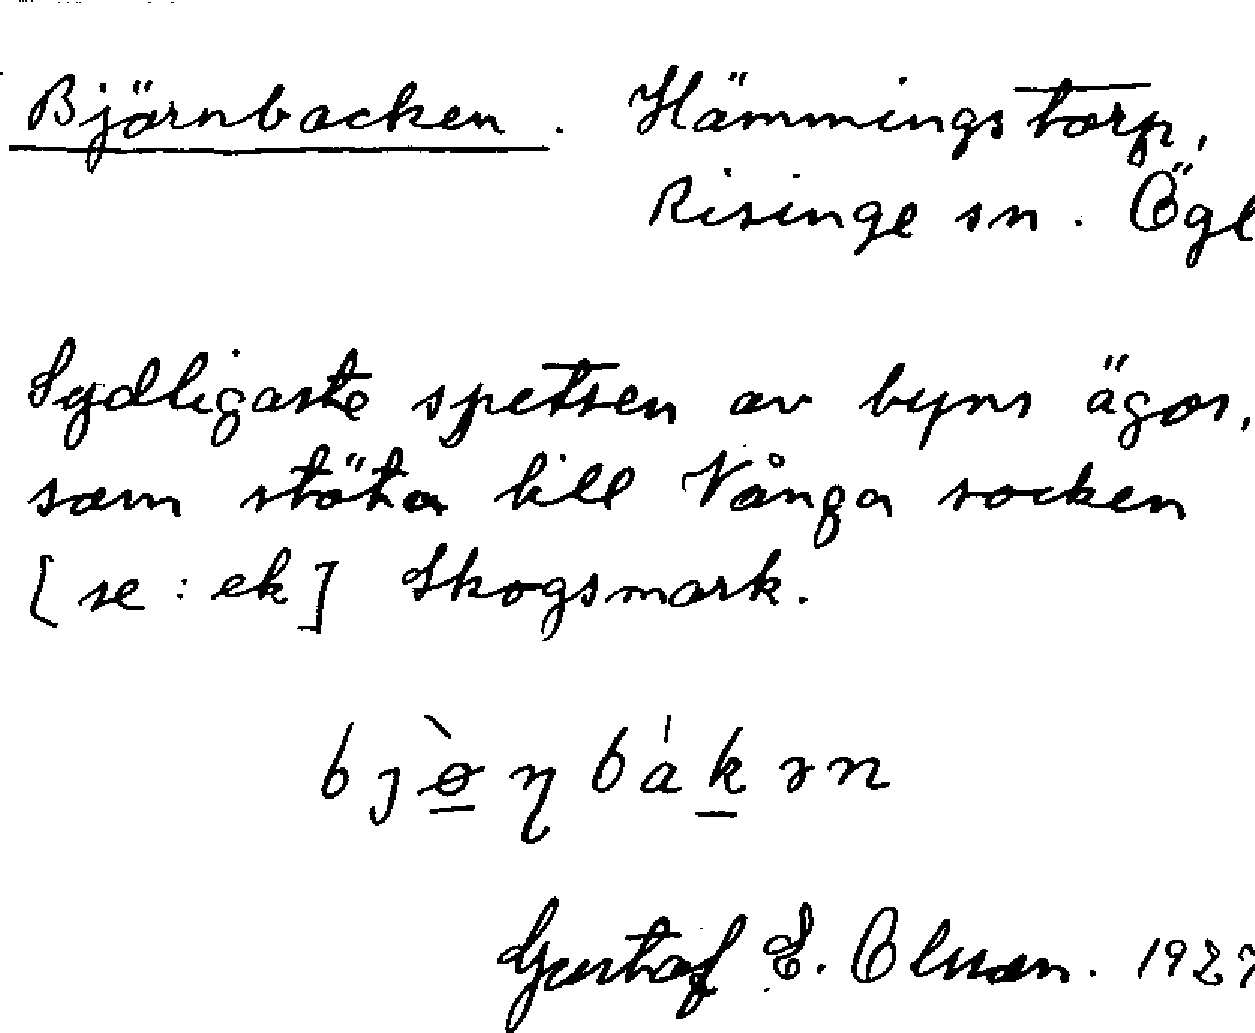 Björnbacken. Hämmingstorp,
Risinge sn. Ögl
Sydligaste spetsen av byns ägor,
som stöta till Vånga socken
[se: ek] Skogsmark.
bjø̲̀ɳbákən
Gustaf E. Olsson. 192